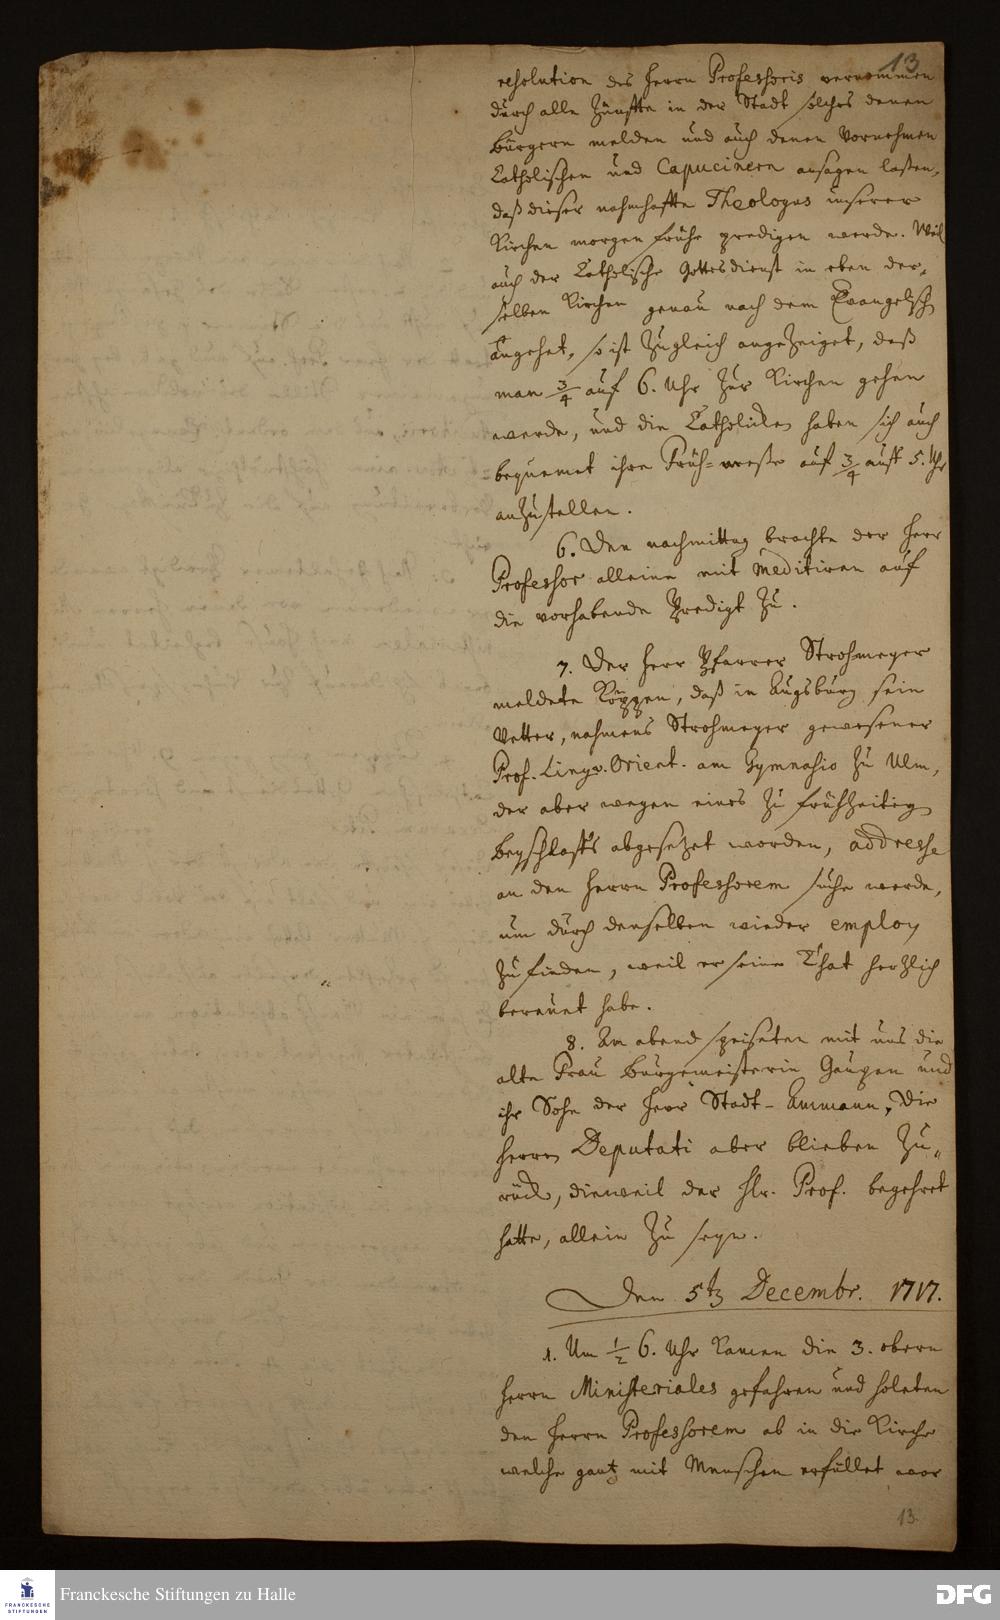 13
resolution des Herrn Professoris vernommen
durch alle Zünffte in der Stadt solches denen
Bürgern melden und auch denen Vornehmen
Catholischen und Capucinern ansagen laßen,
daß dieser nahmhaffte Theologus unserer
Kirchen morgen frühe predigen werde. Weil
auch der Catholische Gottesdienst in eben der„
selben Kirchen genau nach dem Evangelisch
angehet, so ist zugleich angezeiget, daß
man 3/4 auf 6. Uhr zur Kirchen gehen
werde, und die Catholicken haben sich auch
bequemet ihre Früh-messe auf 3/4 auff 5. Uhr
anzustellen.
6. Den nachmittag brachte der Herr
Professor alleine mit meditiren auf
die vorhabende Predigt zu.
7. Der Herr Pfarrer Strohmeyer
meldete Köppen, daß in Augsburg sein
Vetter, nahmens Strohmeyer gewesener
Prof. Lingv. Orient. am Gymnasio zu Ulm,
der aber wegen eines zu frühzeitig
Beyschlaffs abgesetzet worden, addresse
an den Herrn Professorem suche werde,
um durch denselben wieder employ
zu finden, weil er seine That hertzlich
bereuet habe.
8. Am abend speiseten mit uns die
alte Frau Bürgemeisterin Gaupen und
ihr Sohn der Herr Stadt-Ammann, Die
Herrn Deputati aber blieben zu„
rück, dieweil der Hr. Prof. begehret
hatte, allein zu seyn.
Den 5ten Decembr. 1717.
1. Um 1/2 6. Uhr kamen die 3. obern
Herrn Ministeriales gefahren und holeten
den Herrn Professorem ab in die Kirche
welche gantz mit Menschen erfüllet war
13.
FRANCKESCHE
STIFTUNGEN
Franckesche Stiftungen zu Halle
DFG